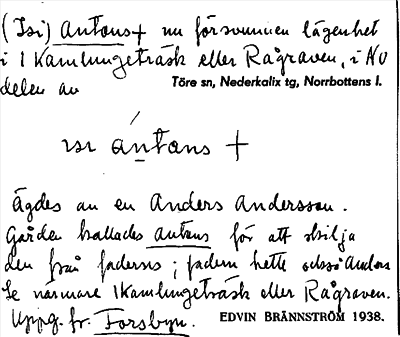 (Isi) Antons + nu försvunnen lägenhet
i 1 Kamlungeträsk eller Rågraven, i NV
delen av
Töre sn, Nederkalix tg, Norrbottens l.
ısı ántans +
Ägdes av en Anders Andersson.
Gården kallades antans för att skilja
den från faderns; fadern hette också Anders
Se närmare 1 Kamlungeträsk eller Rågraven.
Uppg. fr. Forsbyn.
EDVIN BRÄNNSTRÖM 1938.